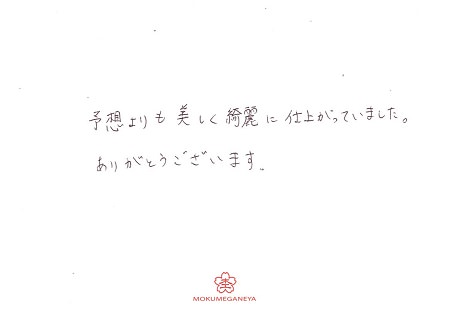 予想よりも美しく綺麗に仕上がっていました。
ありがとうございます。
MOKUMEGANEYA